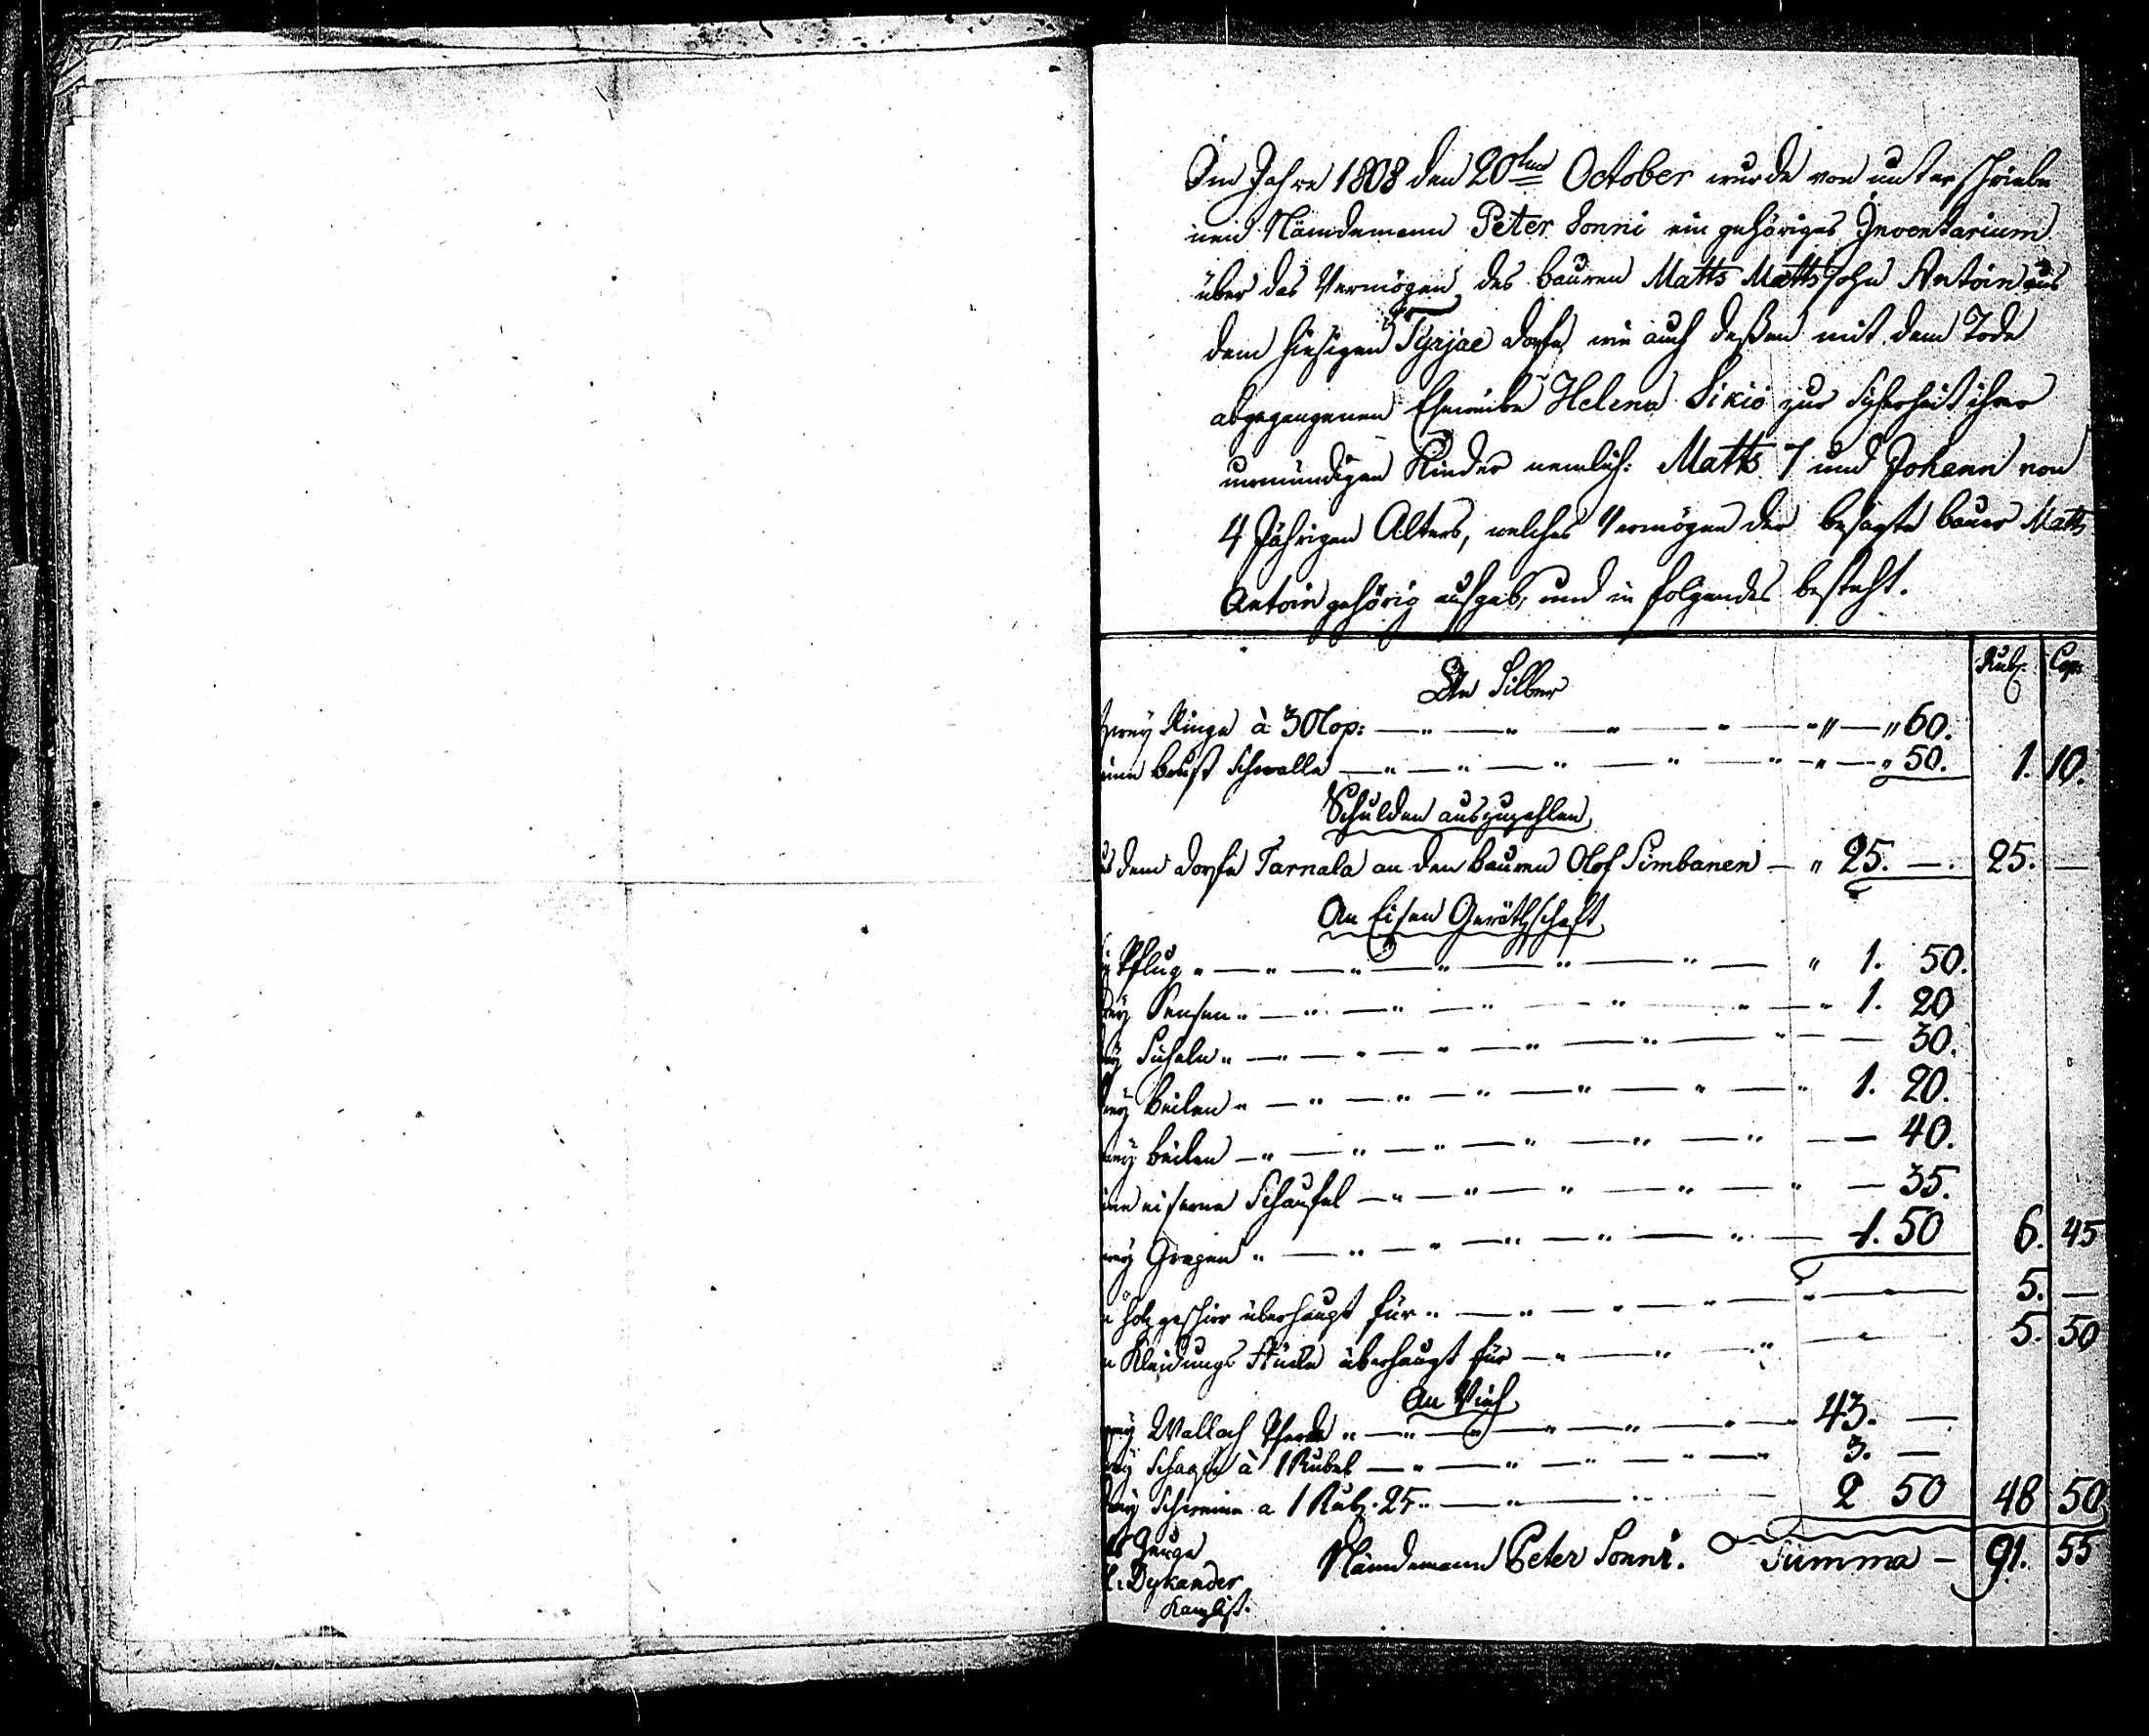 Im Jahre 1808 den 20ten October wurde von unterschriebe
nen Nämdemann Peter Sonni ein gehöriges Inventarium
über das Vermögen des Bauren Matts Mattssohn Antoin aus
dem hiesigen Tyrjae Dorfe, wie auch deßen mit dem Tode
abgegangenen Eheweibe Helena Sikiö zur Sicherheit ihrer
unmündigen Kinder nemlich: Matts 7 und Johann von
4 Jährigen Alters, welches Vermögen der besagte Bauer Matts
Antoin gehörig aufgab, und in folgendes besteht.
Rub. Cop.
An Silber
zwey Ringe à 30 Cop: — " — " — " — " — " — " 60.
eine Brust Schnalle — " — " — " — " — " — " 50. 1. 10.
Schulden auszuzahlen
aus dem Dorfe Tarnala an den Bauren Olof Simbanen — " 25. —. 25. —
An Eisen Geräthschaft
Pflug " — " — " — " — " — " — " 1. 50.
Sensen " — " — " — " — " — " — " 1. 20
Sicheln " — " — " — " — " — " — 30.
Beilen " — " — " — " — " — " — " 1. 20.
Beilen — " — " — " — " — " — " — 40.
eine eiserne Schaufel — " — " — " — " — " — 35.
Grapen " — " — " — " — " — " — 1. 50 6. 45
Holzgeschirr überhaupt für " — " — " — " — " — 5. —
Kleidungs Stücke überhaupt für — " — " — " — 5. 50
An Vieh
Wallach Pferde " — " — " — " — " — " — " 43. —
Schaafe à 1 Rubel — " — " — " — " — " 3. —
Schweine a 1 Rub. 25 " — " — " — 2 50 48 50
Zeuge Nämdemann Peter Sonni. Summa — 91. 55
Dykander
Kanzlist.